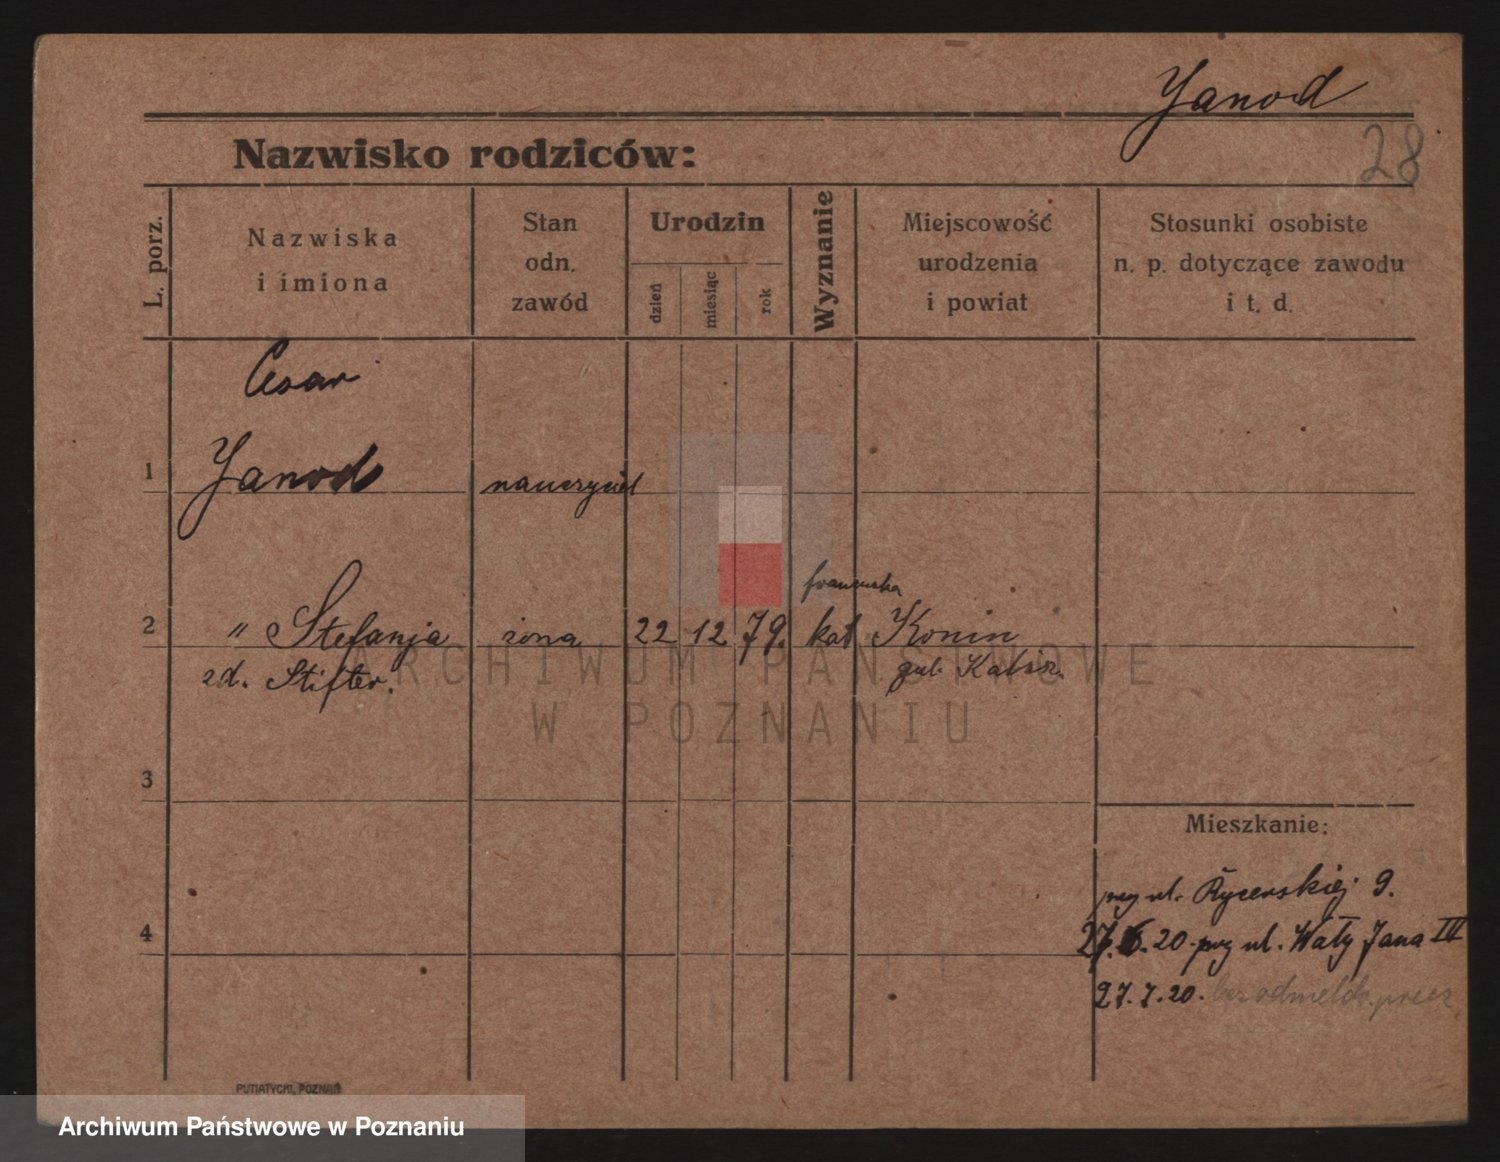 Yanod
28
Nazwisko rodziców:
L. porz.
Nazwiska
i imiona
Stan
odn.
zawód
Urodzin
dzień
miesiąc
rok
Wyznanie
Miejscowość
urodzenia
i powiat
Stosunki osobiste
n. p. dotyczące zawodu
i t. d.
Cesar
1 Yanod nauczyciel
francuska
2 " Stefanja żona 22 12 79. kat Konin
zd. Stifter. gub. Kalisz.
ARCHIWUM PAŃSTWOWE
W POZNANIU
3
Mieszkanie:
przy ul. Rycerskiej 9.
4
27.6.20. przy ul. Wały Jana III
27.7.20. bez odmeld. precz
PUTIATYCKI, POZNAŃ
Archiwum Państwowe w Poznaniu